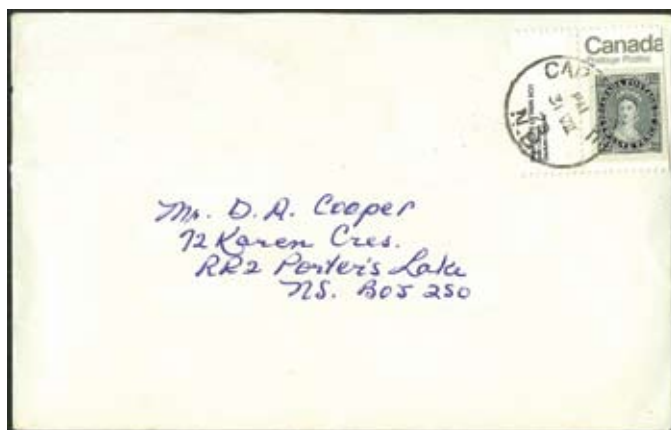 Canada
Postage Postes
PM
31 VII
Mr. D. A. Cooper
72 Karen Cres.
RR2 Porter's Lake
NS. B0J 2S0